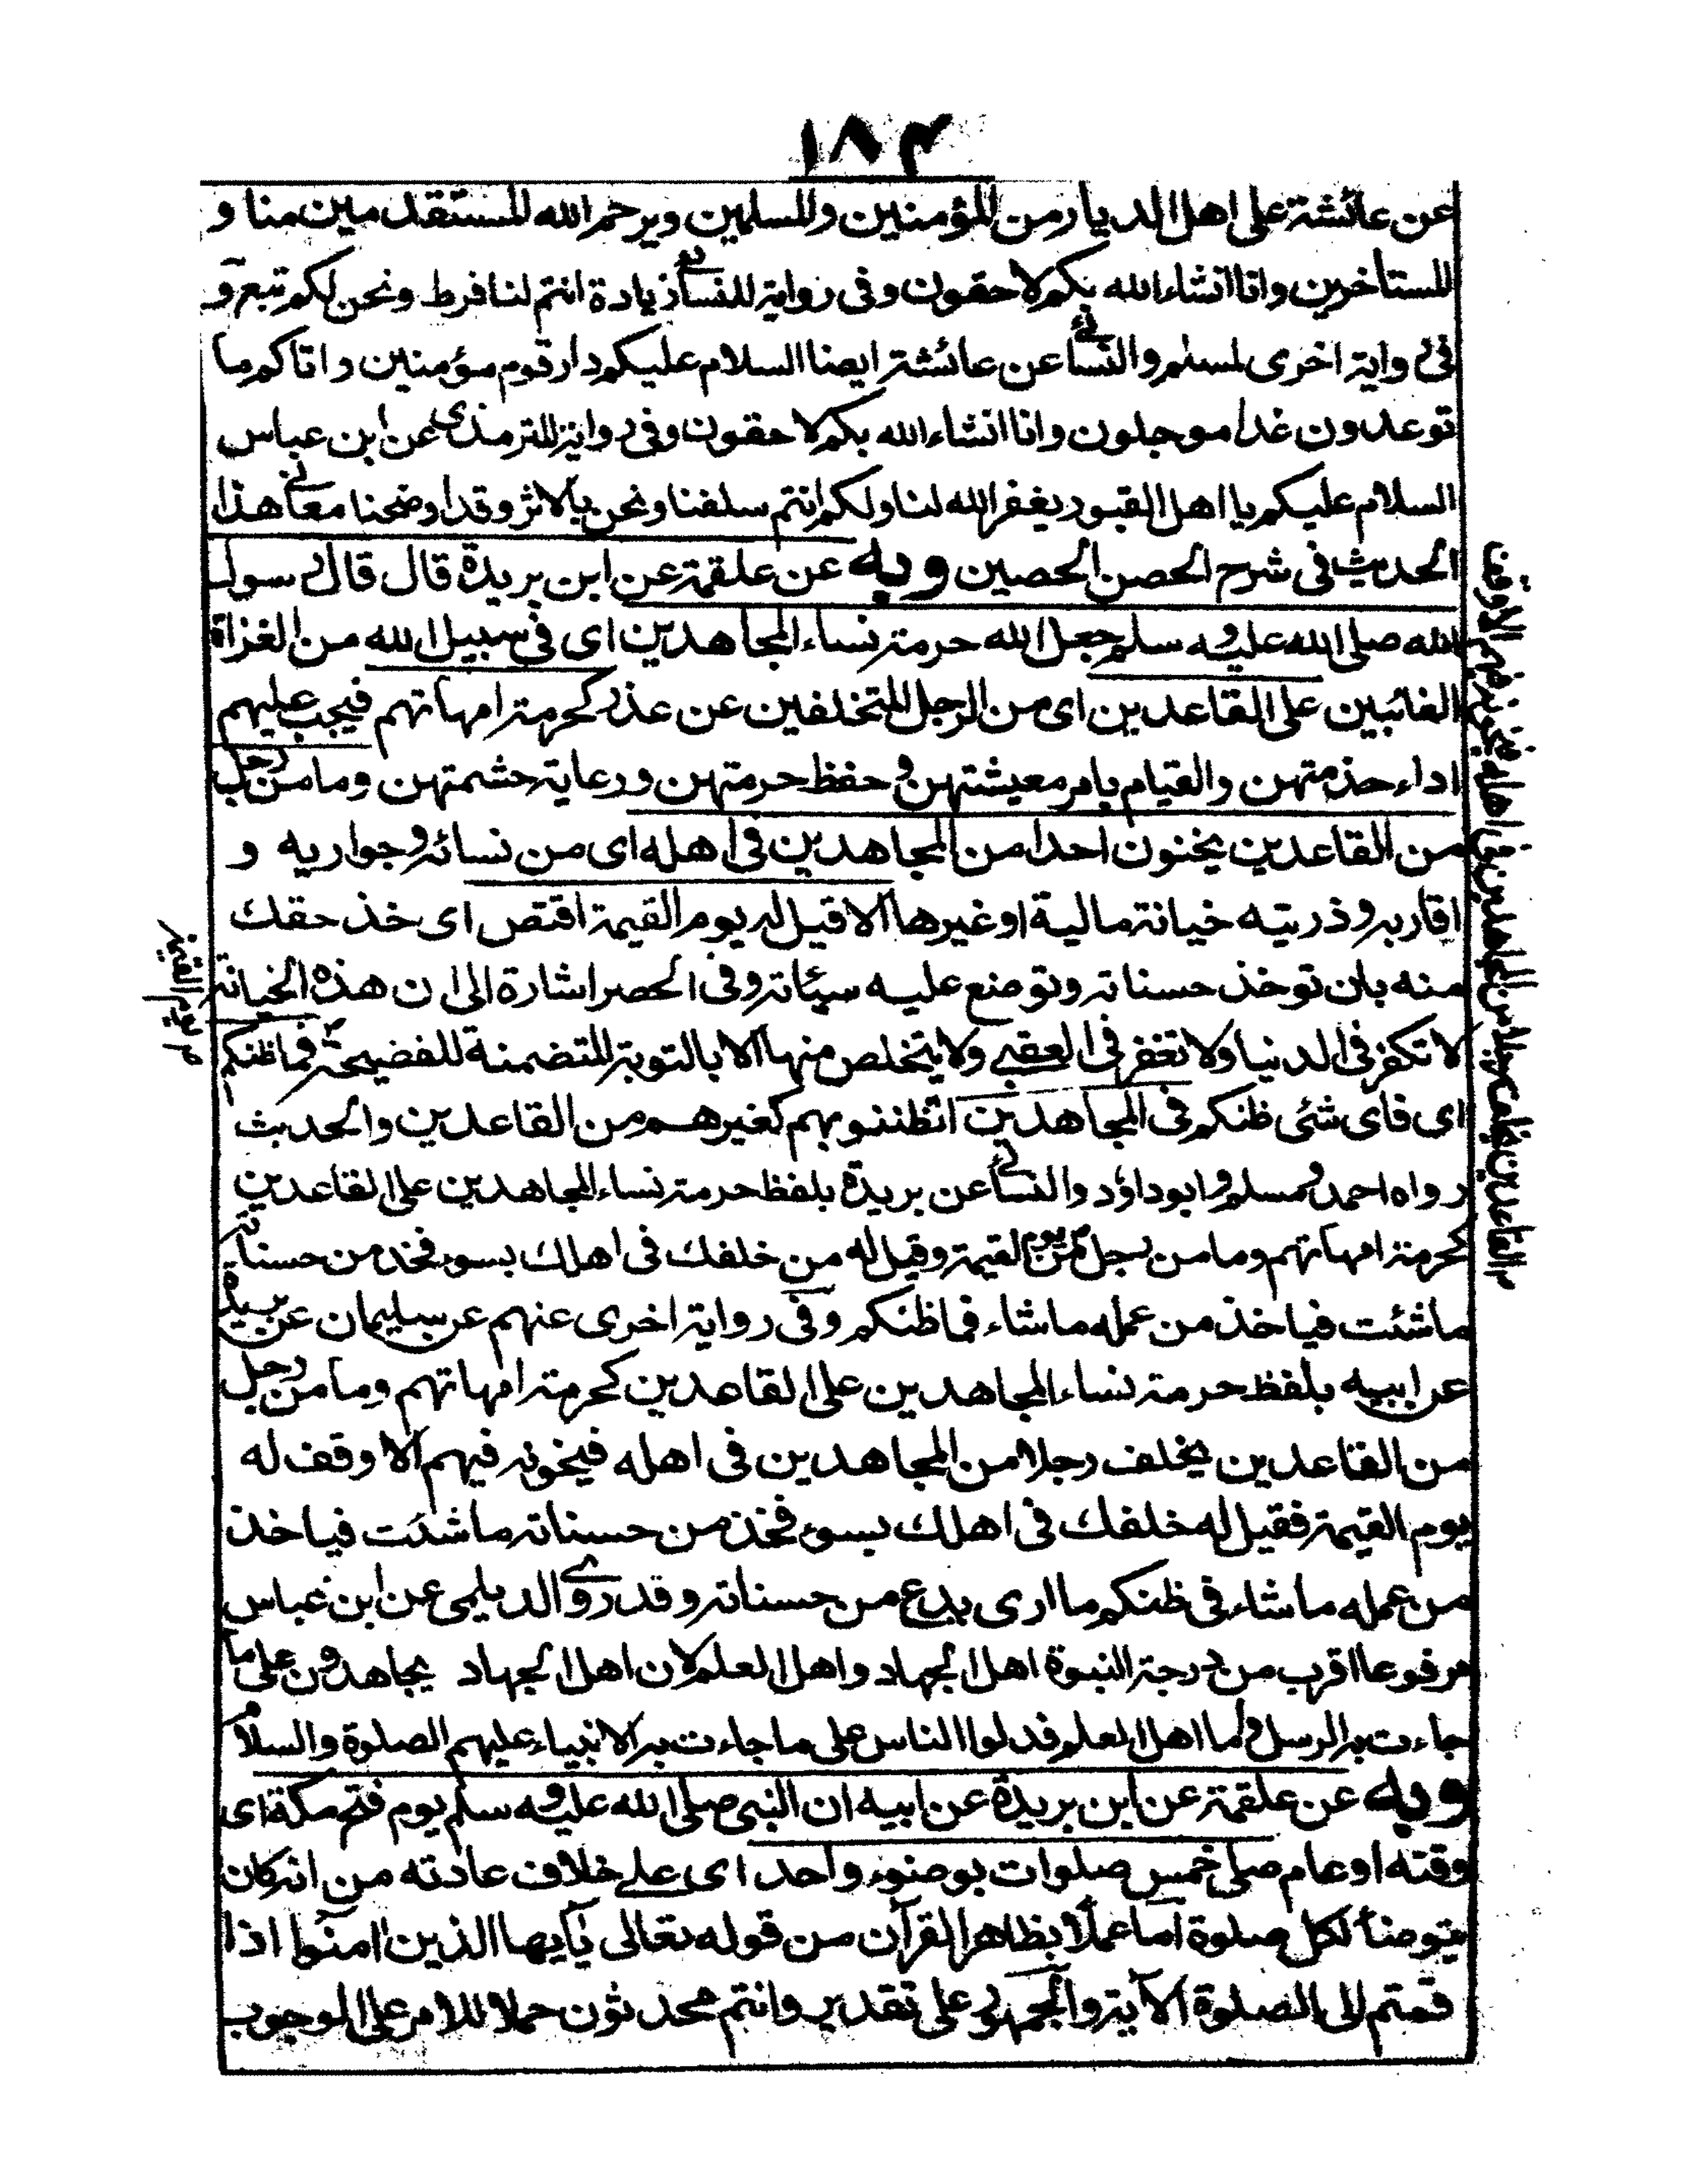 ١٨٣
عن عائشة على اهل الديار من المؤمنين والمسلمين ويرحم الله المستقدمين منا و
المستاخرين وانا انشاء الله بكم لاحقون وفى رواية للنسائى زيادة انتم لنا فرط ونحن لكم تبع و
فى رواية اخرى لمسلم والنسائى عن عائشة ايضا السلام عليكم دار قوم مؤمنين واتاكم ما
توعدون غدا موجلون وانا انشاء الله بكم لاحقون وفى رواية للترمذى عن ابن عباس
السلام عليكم يا اهل القبور يغفر الله لنا ولكم انتم سلفنا ونحن بالاثر وقد اوضحنا معانى هذا
الحديث فى شرح الحصن الحصين وبه عن علقمة عن ابن بريدة قال قال رسول
الله صلى الله عليه وسلم جعل الله حرمة نساء المجاهدين اى فى سبيل الله من الغزاة
الغائبين على القاعدين اى من الرجل المتخلفين عن عذر كحرمة امهاتهم فيجب عليهم
اداء حذمتهن والقيام بامر معيشتهن و حفظ حرمتهن ورعاية حشمتهن وما من رجل
من القاعدين يخنون احدا من المجاهدين فى اهله اى من نسائه وجواريه و
اقاربه وذريته خيانة مالية او غيرها الا قيل له يوم القيمة اقتص اى خذ حقك
منه بان توخذ حسناته وتوضع عليه سيئاته وفى الحصر اشارة الى ان هذه الخيانة
لا تكفر فى الدنيا ولا تغفر فى العقبے ولا يتخلص منها الا بالتوبة المتضمنة للفضيحة فما ظنكم
اى فاى شئى ظنكم فى المجاهدين اتظننو بهم كغيرهم من القاعدين والحديث
رواه احمد ومسلم وابو داؤد والنسائى عن بريدة بلفظ حرمة نساء المجاهدين على القاعدين
كحرمة امهاتهم وما من رجل يوم القيمة وقيل له من خلفك فى اهلك بسوء فخذ من حسناته
ما شئت فياخذ من عمله ماشاء فما ظنكم وفى رواية اخرى عنهم عن سليمان عن بريدة
عن ابيه بلفظ حرمة نساء المجاهدين على القاعدين كحرمة امهاتهم وما من رجل
من القاعدين يخلف رجلا من المجاهدين فى اهله فيخونه فيهم الا وقف له
يوم القيمة فقيل له خلفك فى اهلك بسوء فخذ من حسناته ما شئت فياخذ
من عمله ماشاء فى ظنكم ما ارى يدع من حسناته وقد روى الديلمى عن ابن عباس
مرفوعا اقرب من درجة النبوة اهل الجهاد واهل العلم لان اهل الجهاد يجاهدون على ما
جاءت به الرسل واما اهل العلم فدلوا الناس على ما جاءت به الانبياء عليهم الصلوة والسلام
وبه عن علقمة عن ابن بريدة عن ابيه ان النبى صلى الله عليه وسلم يوم فتح مكة اى
وقته او عام صلى خمس صلوات بوضوء واحد اى علے خلاف عادته من انه كان
يتوضأ لكل صلوة اما عملا بظاهر القرآن من قوله تعالى يٰآيها الذين امنوا اذا
قمتم الى الصلوة الآية والجمهور على تقدير وانتم محدثون حملا للامر على الوجوب
من القاعدين يخلف رجلا من المجاهدين فى اهله فيخونه فيهم الا وقف
له يوم القيمة